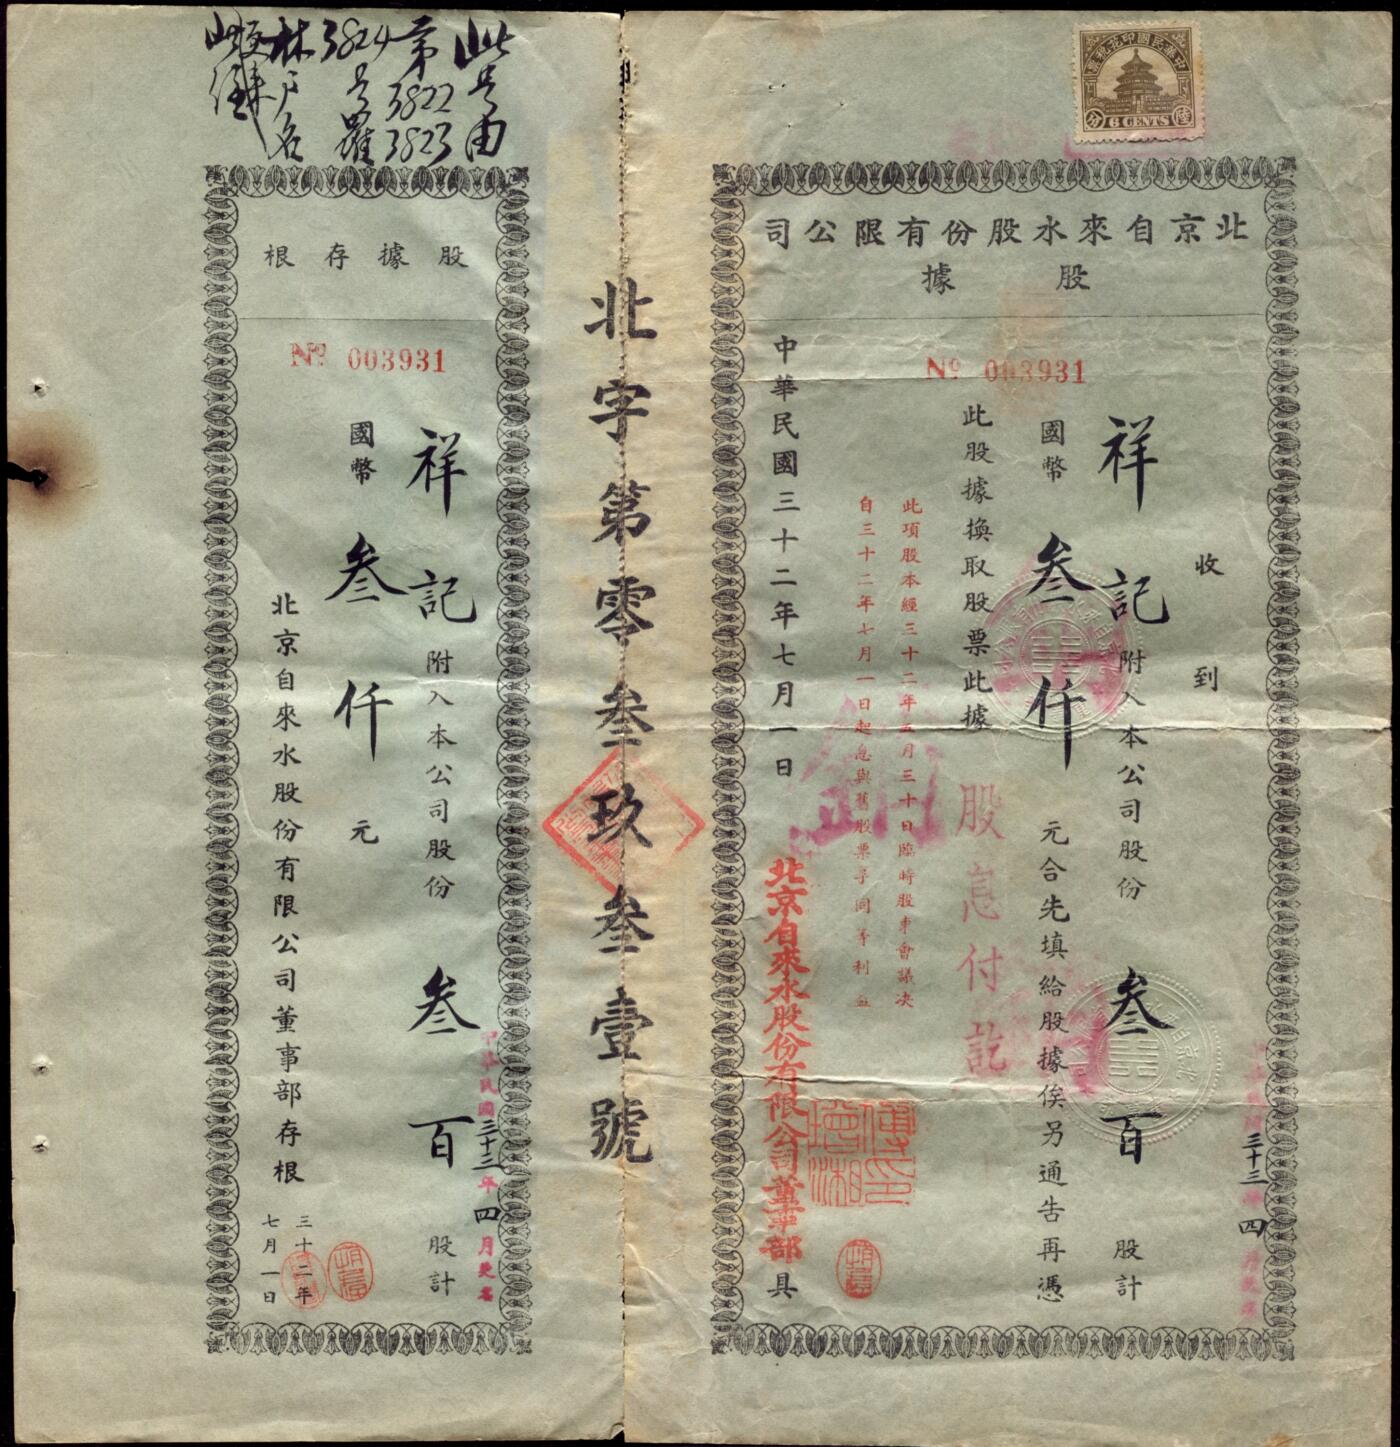 中華民國印花稅票
6 CENTS
北京自來水股份有限公司
股據
Nº 003931
收到
祥記附入本公司股份叁百股計
國幣叁仟元合先填給股據俟另通告再憑
此股據換取股票此據
此項股本經三十二年五月三十日臨時股東會議決
自三十二年七月一日起息與舊股票享同等利益
股息付訖
中華民國三十二年七月一日
北京自來水股份有限公司董事部具
三十三年四月更名
北字第零叁玖叁壹號
此號由
第3822 3823
3824號
林戶名
股據存根
Nº 003931
祥記附入本公司股份叁百股計
國幣叁仟元
北京自來水股份有限公司董事部存根
三十二年
七月一日
中華民國三十三年四月更名